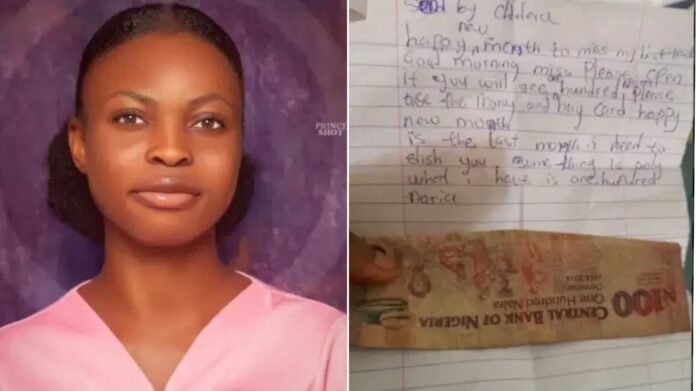 PRINCE
SHOT
Sent by
new
happy month to miss my best
Good morning miss Please open
it you will see hundred Please
the mony and buy Card happy
new month
is the last month i need to
wish you thing is only
what i have is one hundred
Naria
₦100
CENTRAL BANK OF NIGERIA
One Hundred Naira
Centenary
1914-2014